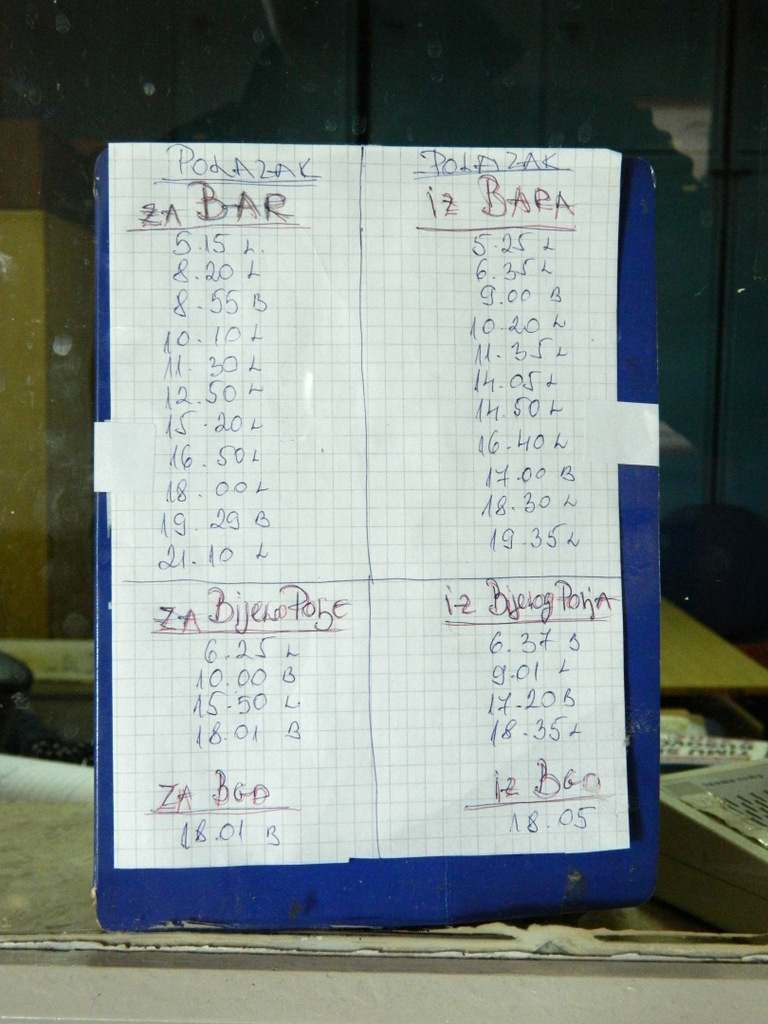 POLAZAK
ZA BAR
5.15 L.
8.20 L
8.55 B
10.10 L
11.30 L
12.50 L
15.20 L
16.50 L
18.00 L
19.29 B
21.10 L
POLAZAK
iZ BARA
5.25 L
6.35 L
9.00 B
10.20 L
11.35 L
14.05 L
14.50 L
16.40 L
17.00 B
18.30 L
19.35 L
ZA BijeloPoljE
6.25 L
10.00 B
15.50 L
18.01 B
iz BijelogPoljA
6.37 B
9.01 L
17.20 B
18.35 L
ZA BGD
18.01 B
iz BGD
18.05